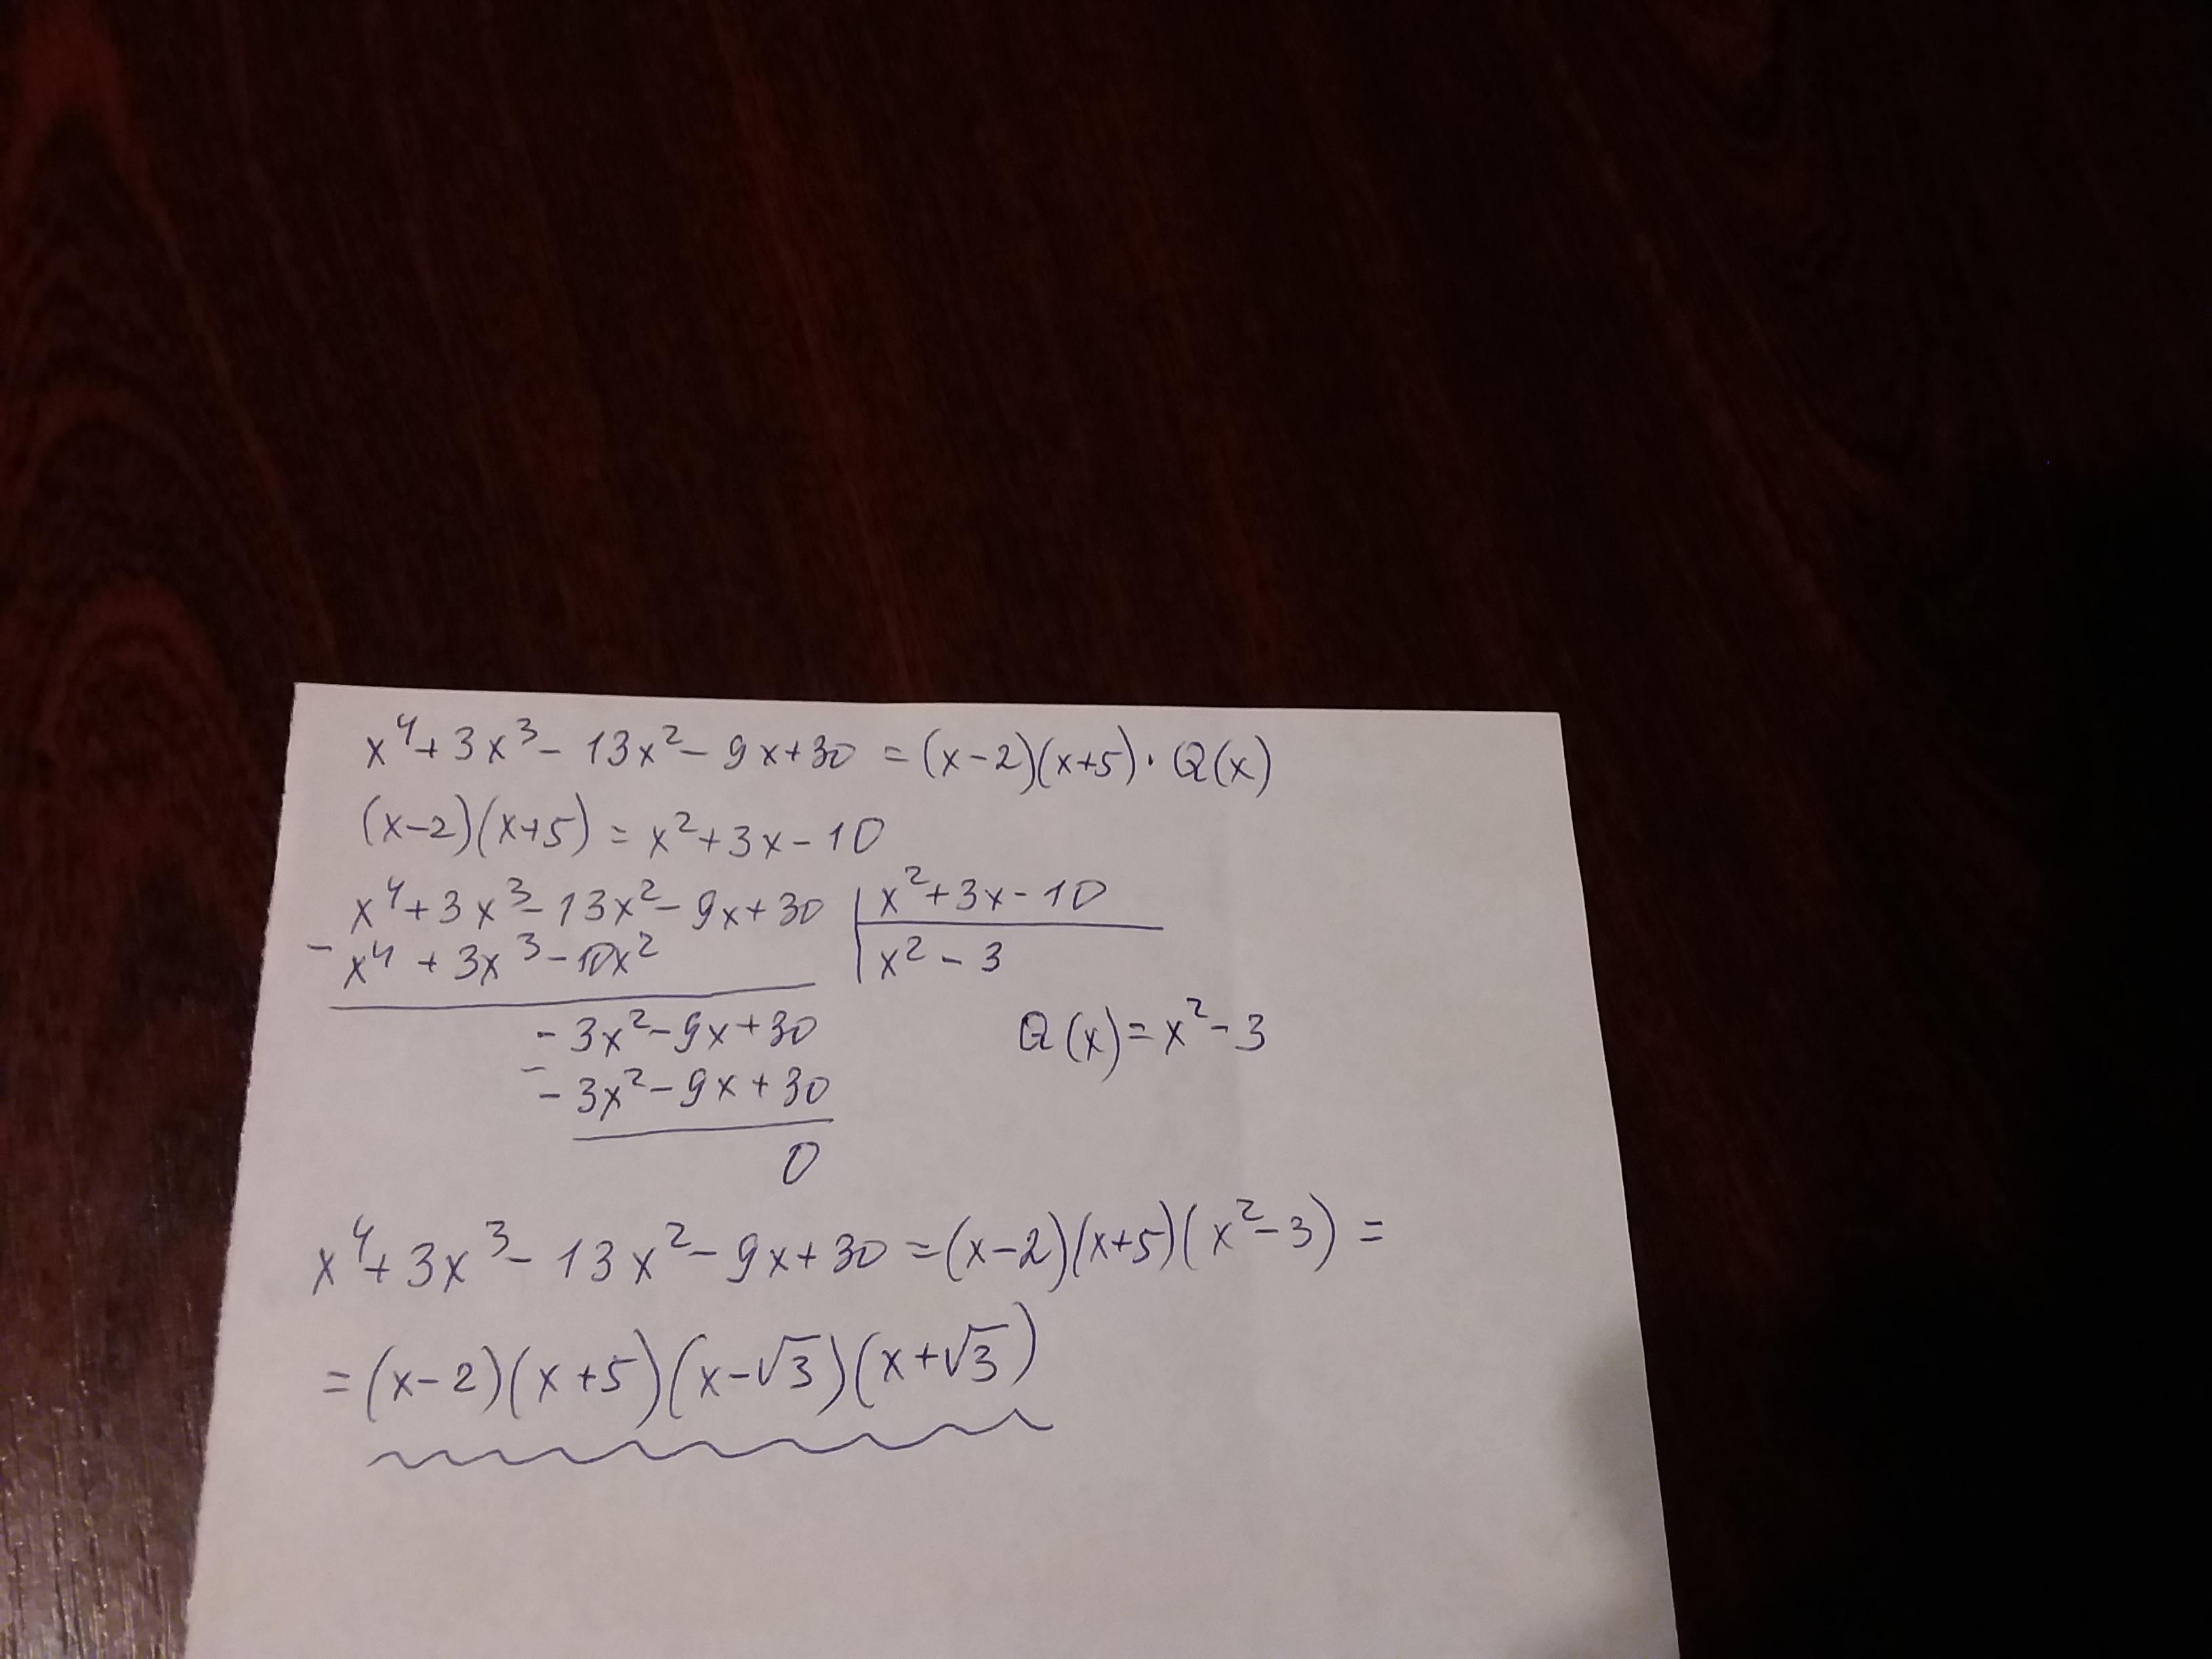 x⁴+3x³-13x²-9x+30 = (x-2)(x+5)·Q(x)
(x-2)(x+5) = x²+3x-10
x⁴+3x³-13x²-9x+30 | x²+3x-10
- x⁴+3x³-10x² | x²-3
-3x²-9x+30 Q(x)=x²-3
- -3x²-9x+30
0
x⁴+3x³-13x²-9x+30 = (x-2)(x+5)(x²-3) =
= (x-2)(x+5)(x-√3)(x+√3)